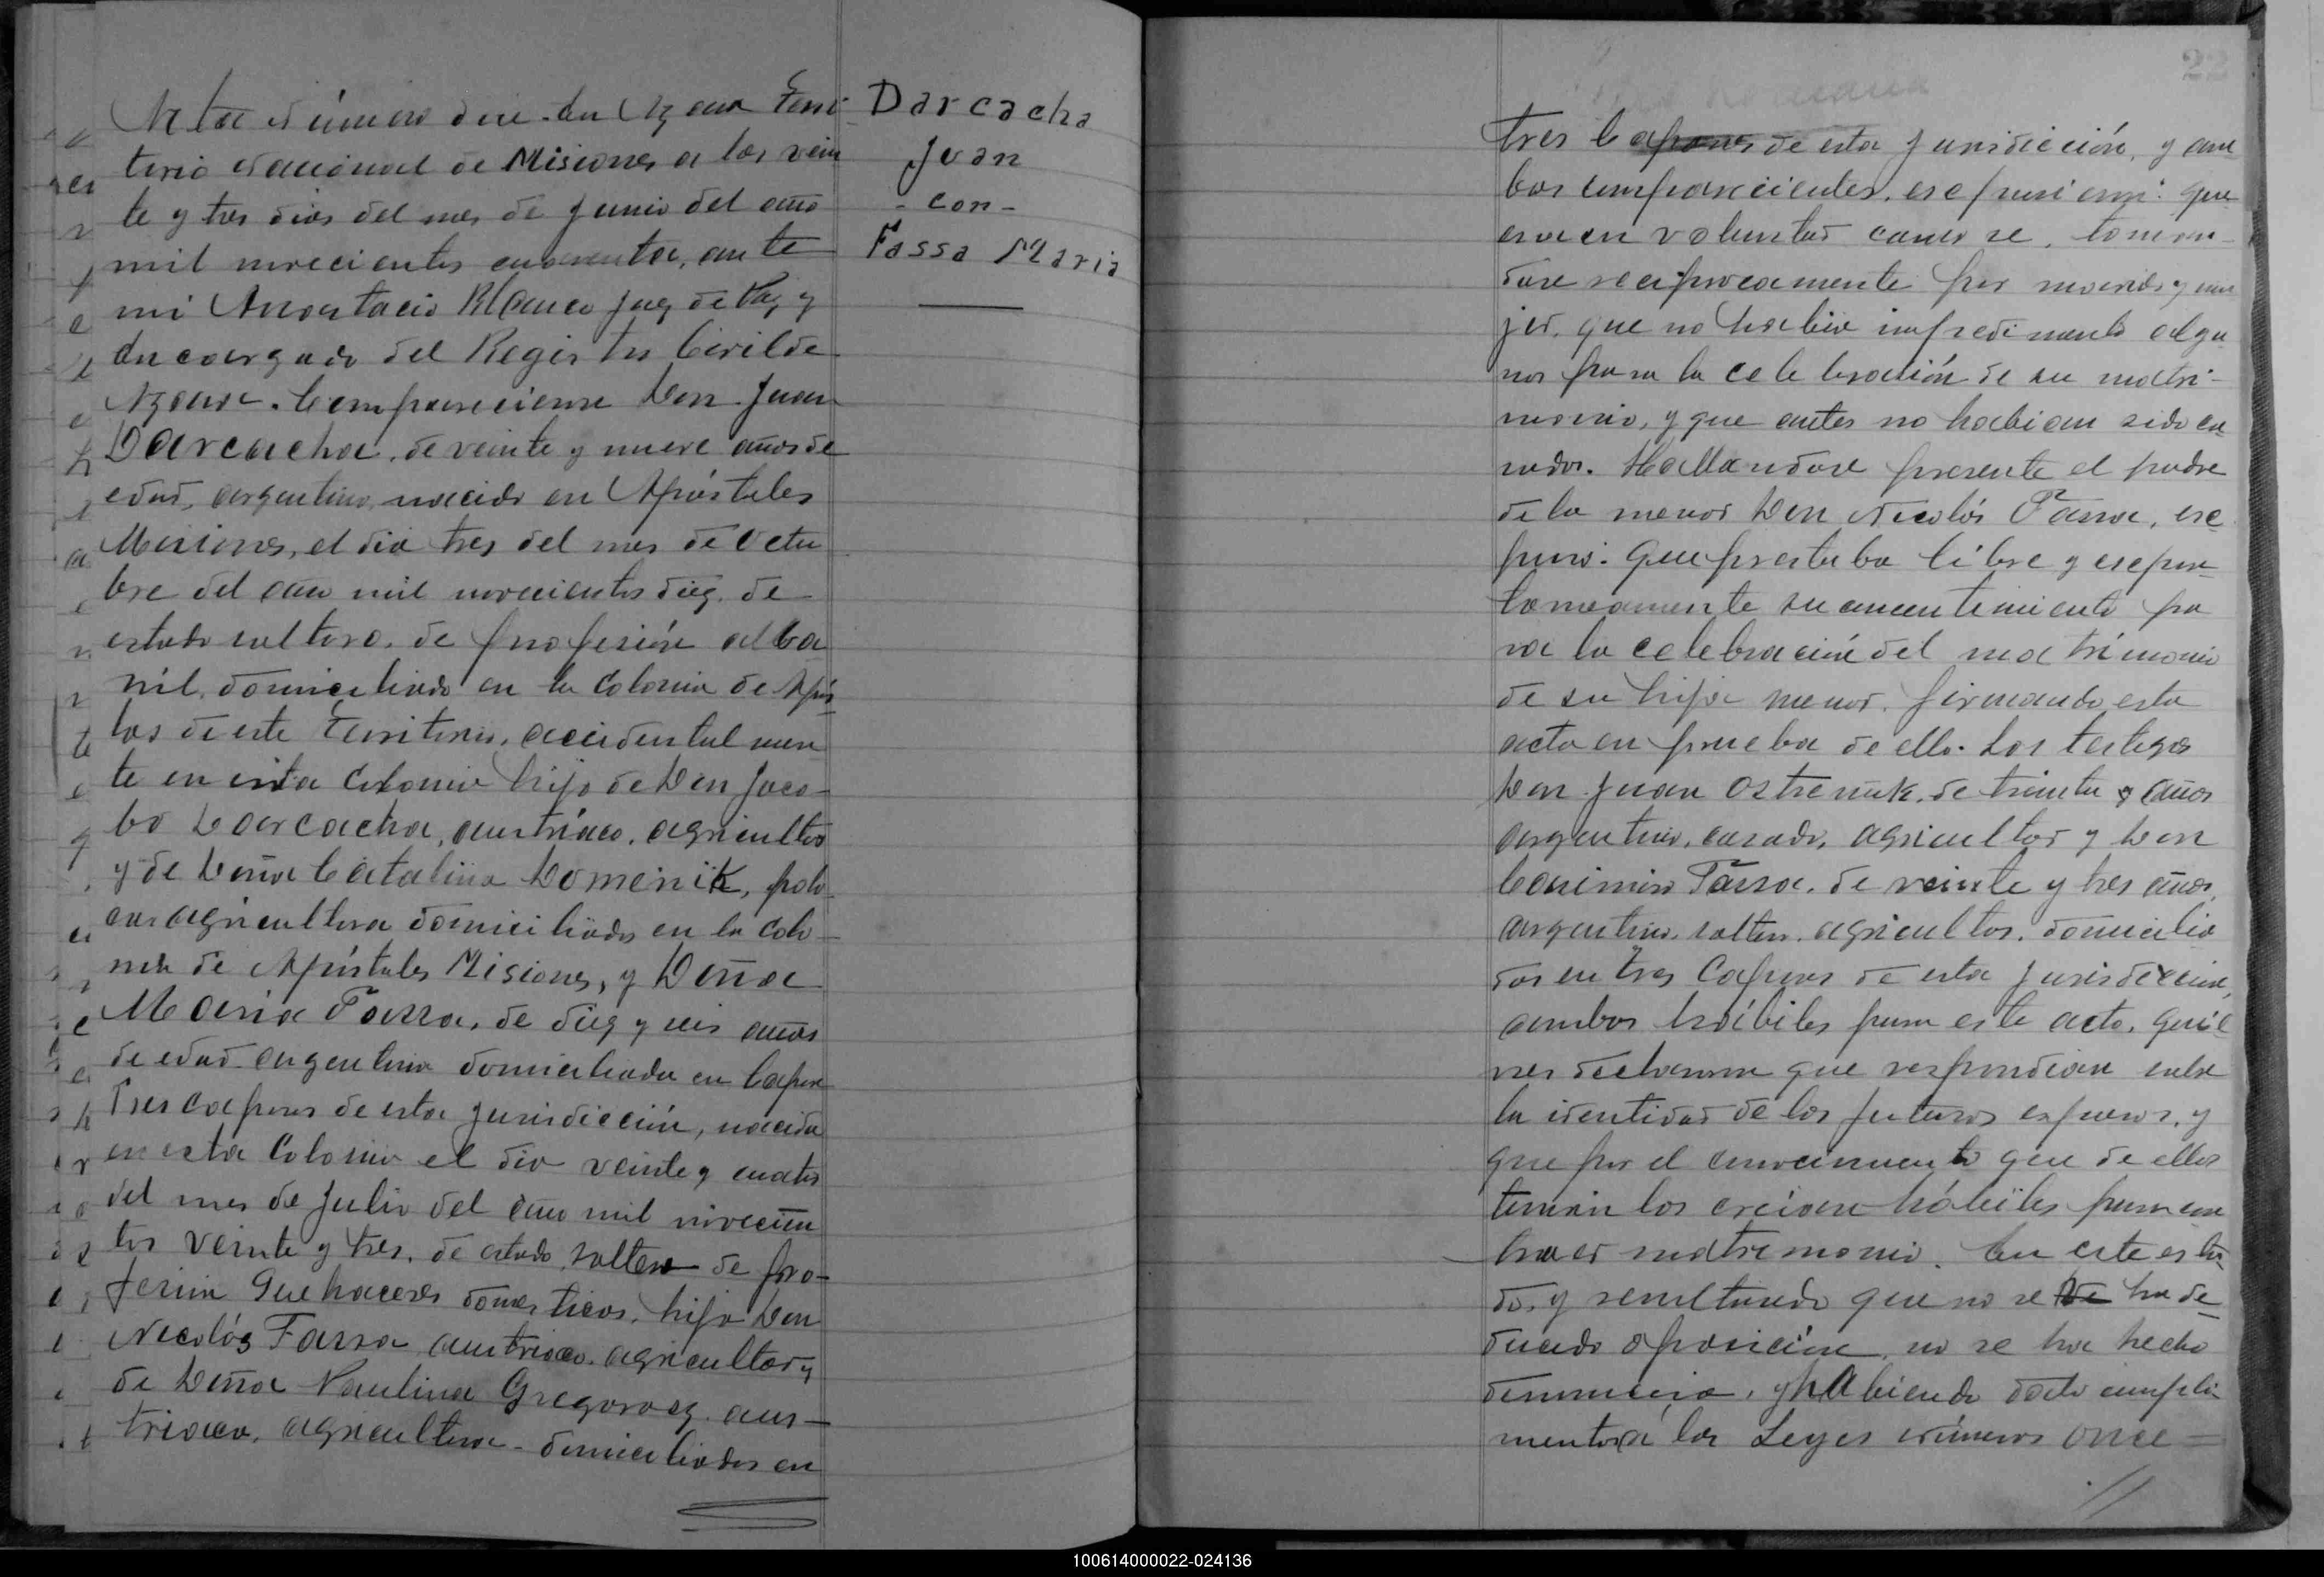 Acta Número doce. En Azara Terri
torio Nacional de Misiones a los vein
te y tres dias del mes de Junio del año
mil novecientos cuarenta, ante
mi Anastacio Blanco Juez de Paz y
Encargado del Registro Civil de
Azara. Comparecieron Don Juan
Darcacha, de veinte y nueve años de
edad, argentino, nacido en Apóstoles
Misiones, el dia tres del mes de Octu
bre del año mil novecientos diez, de
estado soltero, de profesión alba
ñil, domiciliado en la Colonia de Após
tos de este Territorio, accidentalmen
te en esta Colonia hijo de Don Jaco-
bo Darcacha, austriaco, agricultor
y de Doña Catalina Domenik, pola
ca agricultora domiciliados en la Colo-
nia de Apóstoles Misiones, y Doña
Maria Fassa, de diez y seis años
de edad argentina domiciliada en
Tres Capones de esta jurisdicción, nacida
en esta Colonia el dia veinte y cuatro
del mes de Julio del año mil novecien
tos veinte y tres, de estado soltera de pro-
fesión Quehaceres domesticos, hija Don
Nicolás Fassa austriaco, agricultor y
de Doña Paulina Gregoroez, aus-
triaca, agricultora, domiciliados en
Darcacha
Juan
- con -
Fassa Maria
22
tres Capones de esta Jurisdicción, y am
bos comparecientes, expusieron: que
era su voluntad casarse, toman-
dose reciprocamente por marido y mu
jer, que no habia impedimento algu
nos para la celebración de su matri-
monio, y que antes no habian sido ca
sados. Hallandose presente el padre
de la menor Don Nicolás Fassa, ex
puso: Que prestaba libre y espon-
taneamente su consentimiento pa
ra la celebración del matrimonio
de su hija menor, firmando esta
acta en prueba de ello. Los testigos
Don Juan Ostreñuk, de treinta y años
argentino, casado, agricultor y Don
Casimiro Fassa, de veinte y tres años,
argentino, soltero, agricultor, domicilia
dos en tres Capones de esta Jurisdicción,
ambos hábiles para este acto, quié
nes declararon que respondian sobre
la identidad de los futuros esposos, y
que por el conocimiento que de ellos
tenian los creian hábiles para con
traer matrimonio. En este esta
do, y resultando que no se ha de
ducido oposición, no se ha hecho
denuncia, y habiendo dado cumpli
mentos á las Leyes números once =
100614000022-024136